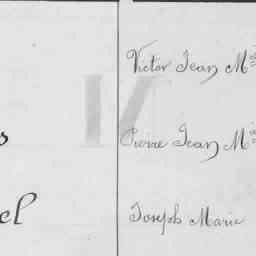 Victor Jean M
Pierre Jean M
s
el
Joseph Marie